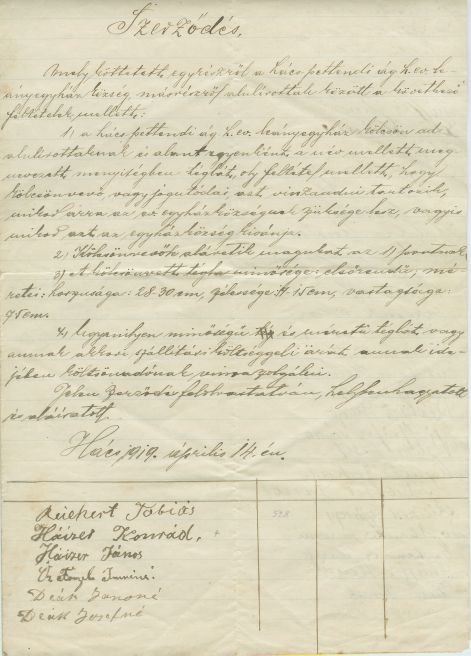 Szerződés,
mely köttetett egyrészről a hács pettendi ág. h. ev. le-
ányegyház község, másrészről alulírottak között a következő
föltételek mellett:
1) a hács pettendi ág. h. ev. leányegyház kölcsön ad
alulírottaknak és alant egyenként, a név mellett meg
nevezett menyiségben téglát, oly feltétel mellett, hogy
kölcsönvevő vagy jogutódai azt visszaadni tartozik,
mikor arra az ev. egyházközségnek szüksége lesz, vagyis
mikor azt az egyházközség kívánja.
2) Kölcsönvevők alávetik magukat az 1) pontnak
3) A kölcsönvett tégla minősége: elsőrendű, mé-
retei: hosszusága: 28-30 cm, szélessége 14-15 cm, vastagsága:
7,5 cm.
4) Ugyanilyen minőségű és méretű téglát, vagy
annak akkori szállítási költséggeli árát annak ide-
jében kölcsönadónak visszaszolgálni.
Jelen Szerződés felolvastatván, helybenhagyatott
és aláíratott.
Hács, 1919. április 14.-én.
Reichert Tobiás
Háizer Konrád.
Háizer János
Deák Janosné
Deák Josefné